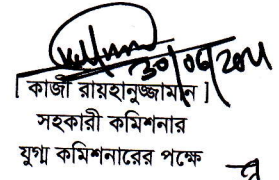 ৩০/০৬/২০১১
[ কাজী রায়হানুজ্জামান ]
সহকারী কমিশনার
যুগ্ম কমিশনারের পক্ষে